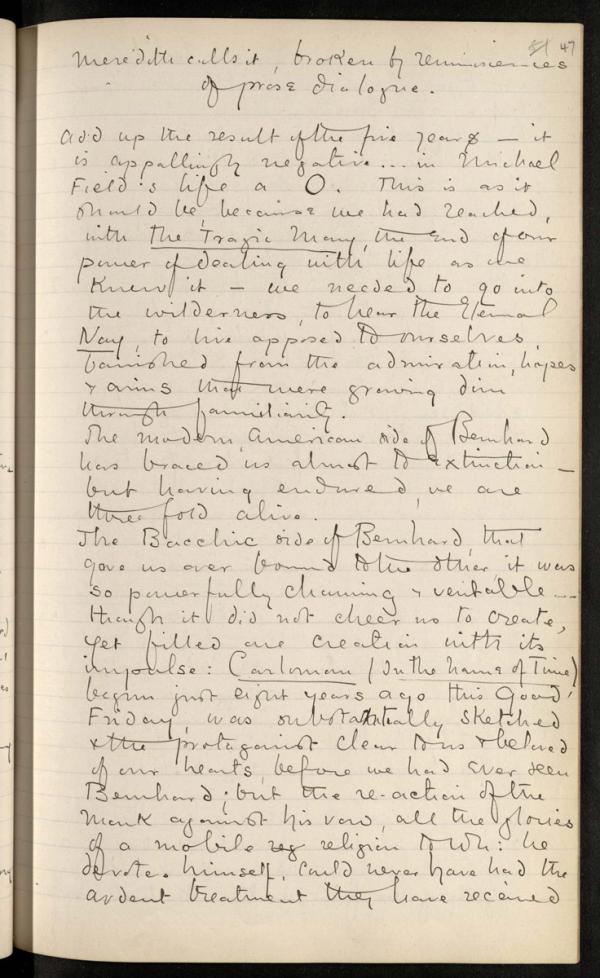 51 47
Meredith calls it, broken by reminiscences
of prose dialogue.
Add up the result of the five years — it
is appallingly negative... in Michael
Field's life a O. This is as it
should be, because we had reached,
with The Tragic Mary, the end of our
power of dealing with life as we
knew it — we needed to go into
the wilderness, to hear the Eternal
Nay, to live opposed to ourselves,
banished from the admiration, hopes
& aims that were growing dim
through familiarity.
The modern, American side of Bernhard
has braced us almost to extinction —
but having endured, we are
threefold alive.
The Bacchic side of Bernhard, that
gave us over bound to the other it was
so powerfully charming & veritable —
though it did not cheer us to create,
yet filled one creation with its
impulse: Carloman (In the Name of Time)
begun just eight years ago this Good
Friday, was substantially sketched
& the protagonist clear to us & beloved
of our hearts, before we had ever seen
Bernhard; but the re-action of the
Monk against his vow, all the glories
of a mobile reg religion to wh: he
devotes himself, could never have had the
ardent treatment they have received